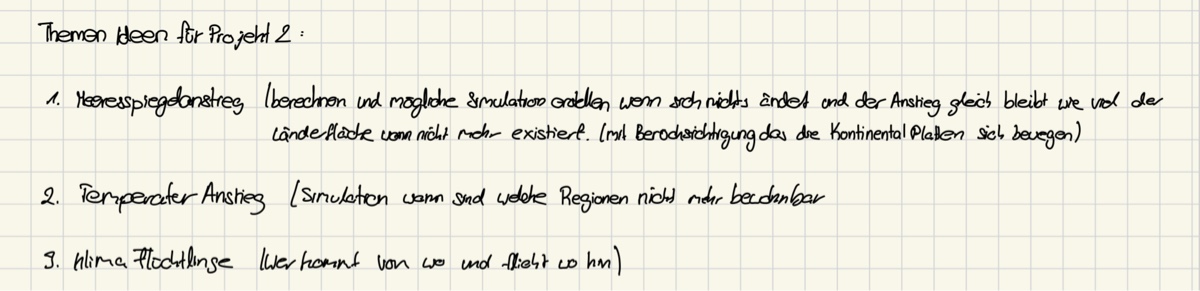 Themen Ideen für Projekt 2 :
1. Meeresspiegelanstieg (berechnen und mögliche Simulation erstellen wenn sich nichts ändert und der Anstieg gleich bleibt wie viel der
Länderfläche wann nicht mehr existiert. (mit Berücksichtigung das die Kontinental Platten sich bewegen)
2. Temperatur Anstieg (Simulation wann sind welche Regionen nicht mehr bewohnbar
3. Klima Flüchtlinge (Wer kommt von wo und flieht wo hin)